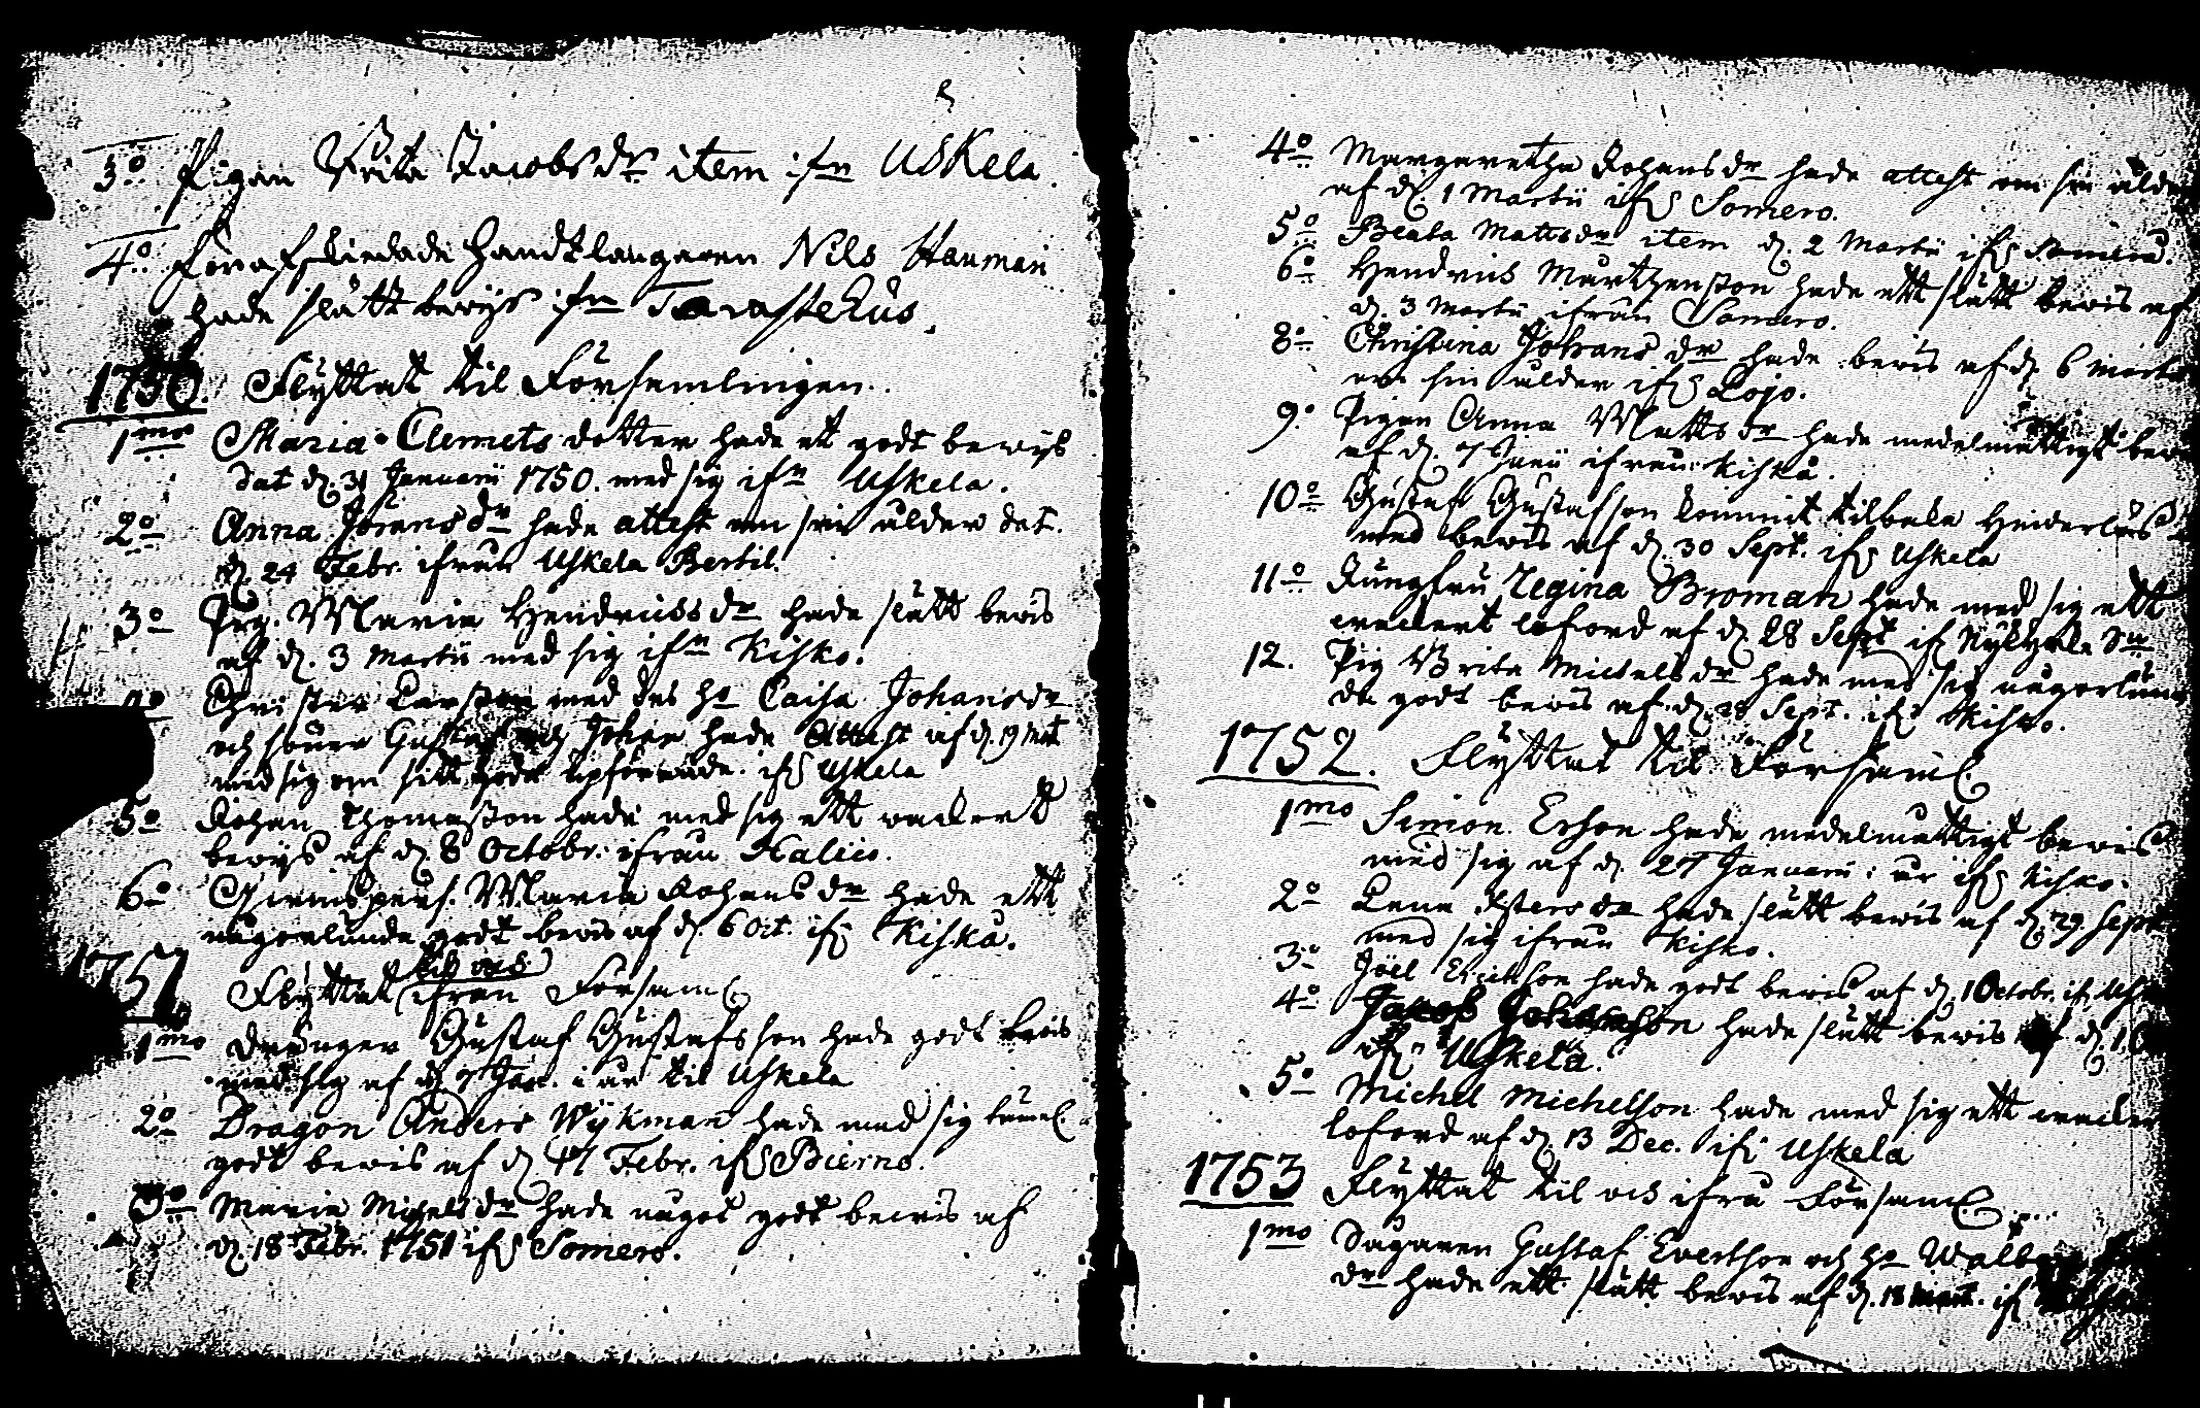 3o Pigan Brita Jacobsdr item ifrn Uskela.
4o Förafskiedade Handtlangaren Nils Hauman
hade slätt bewijs ifrn Tavastehus.
1750. Flyttat til Församlingen.
1mo Maria Clemets dotter hade ett godt bewijs
dat d. 31 Januarii 1750. med sig ifrn Uskela.
2o Anna Jörans dr hade attest om sin ålder dat.
d. 24 Febr. ifrån Uskela Bertil.
3o Pig. Maria Hendricksdr hade slätt bewis
af d. 3 Martii med sig ifrn Kisko.
4o Christer Larsson med des ho Caisa Johansdr
och söner Gustaf och Johan hade attest af d. 19 Mart
med sig om sitt goda upförande. ifr Uskela
5o Johan Thomasson hade med sig ett wackert
bewijs af d. 8 Octobr. ifrån Haliis.
6o Qwinspers. Maria Johansdr hade ett
någorlunda godt bewis af d. 6 Oct. ifr Kisko.
1751 Flyttat til och ifrån Församl.
1mo Drängen Gustaf Gustafsson hade godt bewis
med sig af d. 7 Jan. i år til Uskela
2o Dragon Anders Wijkman hade med sig temel.
godt bewis af d. 17 Febr. ifr Bierno.
3o Maria Michelsdr hade något godt bewis af
d. 18 Febr. 1751 ifr Somero.
4o Margaretha Johansdr hade attest om sin ålder
af d. 1 Martii ifr Somero.
5o Beata Mattsdr item d. 2 Martii ifr Somero.
6o Hendrich Mårtensson hade ett slätt bewis af
d. 3 Martii ifrån Somero.
8o Christina Johans dr hade bewis af d. 6 Martii
om sin ålder ifr Lojo.
9o Pigan Anna Matts dr hade medelmåttigt bewis
af d. 7 Junii ifrån Kisko.
10o Gustaf Gustafsson kommit tilbaka Hinderlös
med bewis af d. 30 Sept. ifr Uskela
11o Jungfru Regina Broman hade med sig ett
wackert loford af d. 28 Sept ifr Nykyrka Sn
12. Pig Brita Michelsdr hade med sig någorlun
da godt bewis af d. 28 Sept. ifr Kisko.
1752. Flyttat til Församl.
1mo Simon Ersson hade medelmåttigt bewis
med sig af d. 27 Januarii i år ifr Kisko.
2o Lena hade slätt bewis af d. 29 Sept
med sig ifrån Kisko.
3o Joel Erichsson hade godt bewis af d. 1 Octobr. ifr Usk
4o Jacob Johansson hade slätt bewis af d.
ifr Uskela.
5o Michel Michelsson hade med sig ett wacker
loford af d. 13 Dec. ifr Uskela
1753 Flyttat til och ifrå Församl.
1mo Gustaf Evertsson och ho Walb
dr hade ett slätt bewis af d. 18 Mart. ifr